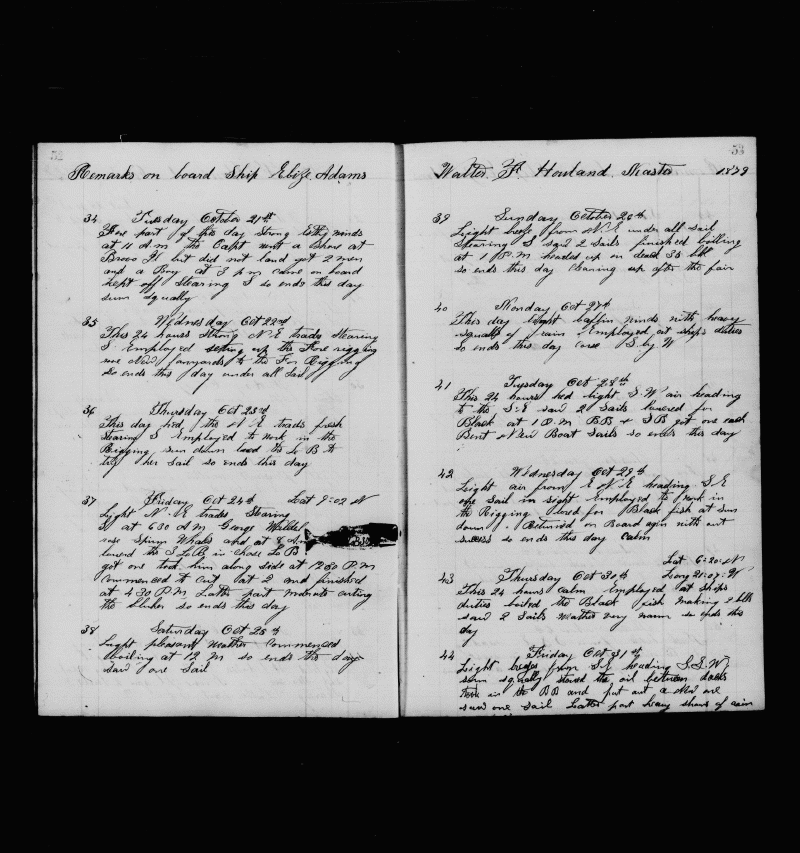 52
Remarks on board Ship Eliza Adams
34 Tuesday October 21st
Fore part of the day Strong winds
at 11 A.m the Capt went a Shore at
Bravo It but did not land got 2 men
and a Boy at 3 P m came on board
kept off Stearing S so ends this day
sum squally
35 Wednesday Oct 22nd
This 24 hours Strong N.E trades Stearing
S Employed setting up the Fore rigging
under all Sail
so ends this day under all Sail
36 Thursday Oct 23rd
This day hed the N E trads fresh
Stearing S Employed to work in the
Rigging sun down lood the Lo B to
try her Sail so ends this day
37 Friday Oct 24th Lat 9:02 N
Light N.E trads Stearing
at 630 A.M George
rase Spirm Whales and at 8 A.m
lowerd the S L B in Chase Lo B
got one took him along side at 1230 P.M
commenced to Cut at 2 and finished
at 430 P.M Latter part moderate cutting
the bluber so ends this day
38 Saturday Oct 25th
Light pleasant weather Commenced
Boiling at 12 M so ends the day
saw one Sail
53
Walter F. Howland Master 1879
39 Sunday October 26th
Light breeze from N.E under all sail
Stearing S saw 2 Sails finished boiling
at 1 P.M headed up on deck 35 bbl
so ends this day clearing up after the fair
40 Monday Oct 27th
This day light baffin winds with heavy
squalls of rain Employed at ships duties
so ends this day corse S. by W
41 Tuesday Oct 28th
This 24 hours hed light S.W air heading
to the S.E saw 2 Sails lowered for
Black at 1 P.M BB & SB got one each
Bent New Boat Sails so ends this day
42 Wednesday Oct 29th
Light air from E N E heading S.E
one Sail in sight Employed to work in
the Rigging lowred for Black fish at sun
down. Returned on Board agin with out
success so ends this day Calm
Lat 6:20: N
43 Thursday Oct 30th Long 21:07: W
This 24 hours calm Employed at Ships
duties boiled the Black fish making 2 bbls
saw 2 Sails weather very warm so ends this
day
44 Friday Oct 31st
Light breze from S.E heading S.S.W
sum squally stowed the oil between decks
took in the BB and put out a New one
saw one Sail Latter part heavy showrs of rain